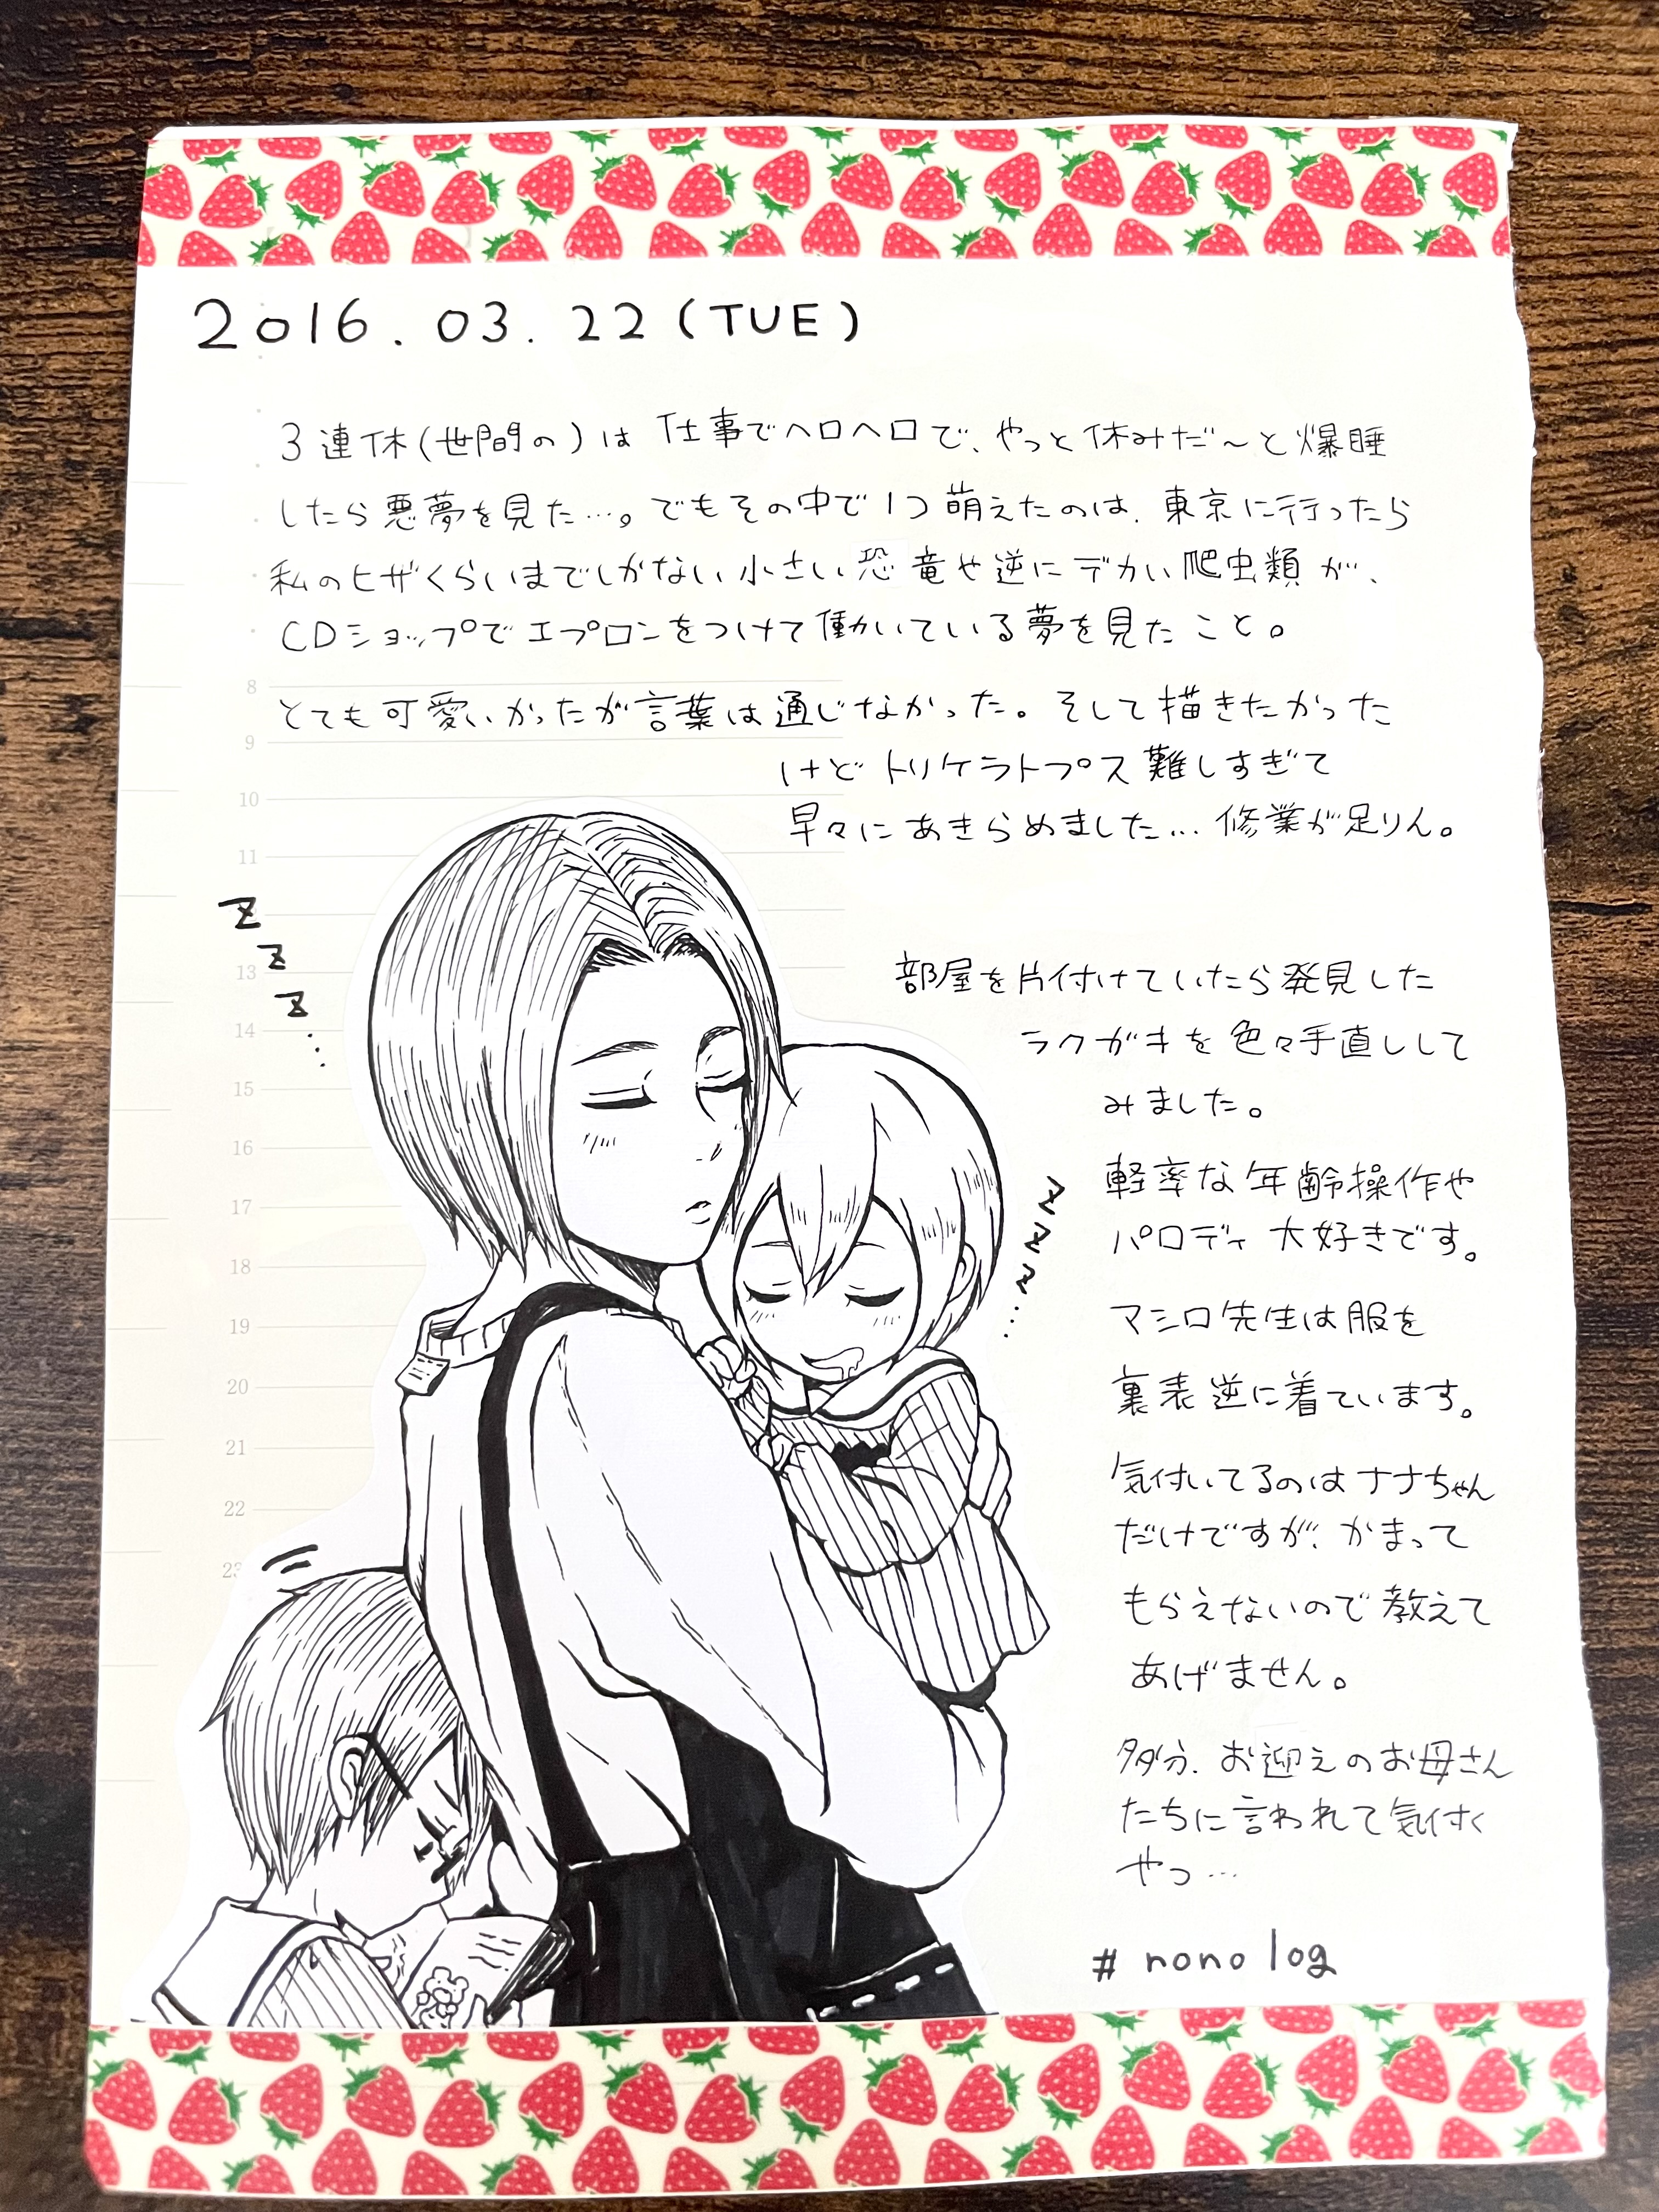 2016.03.22(TUE)
3連休(世間の)は仕事でヘロヘロで、やっと休みだ〜と爆睡
したら悪夢を見た…。でもその中で1つ萌えたのは、東京に行ったら
私のヒザくらいまでしかない小さい恐竜や逆にデカい爬虫類が、
CDショップでエプロンをつけて働いている夢を見たこと。
とても可愛いかったが言葉は通じなかった。そして描きたかった
けどトリケラトプス難しすぎて
早々にあきらめました…修業が足りん。
8
9
10
11
13
14
15
16
17
18
19
20
21
22
23
zzz…
部屋を片付けていたら発見した
ラクガキを色々手直しして
みました。
軽率な年齢操作や
パロディ大好きです。
zzz…
マシロ先生は服を
裏表逆に着ています。
気付いてるのはナナちゃん
だけですが、かまって
もらえないので教えて
あげません。
多分、お迎えのお母さん
たちに言われて気付く
やつ…
# nonolog